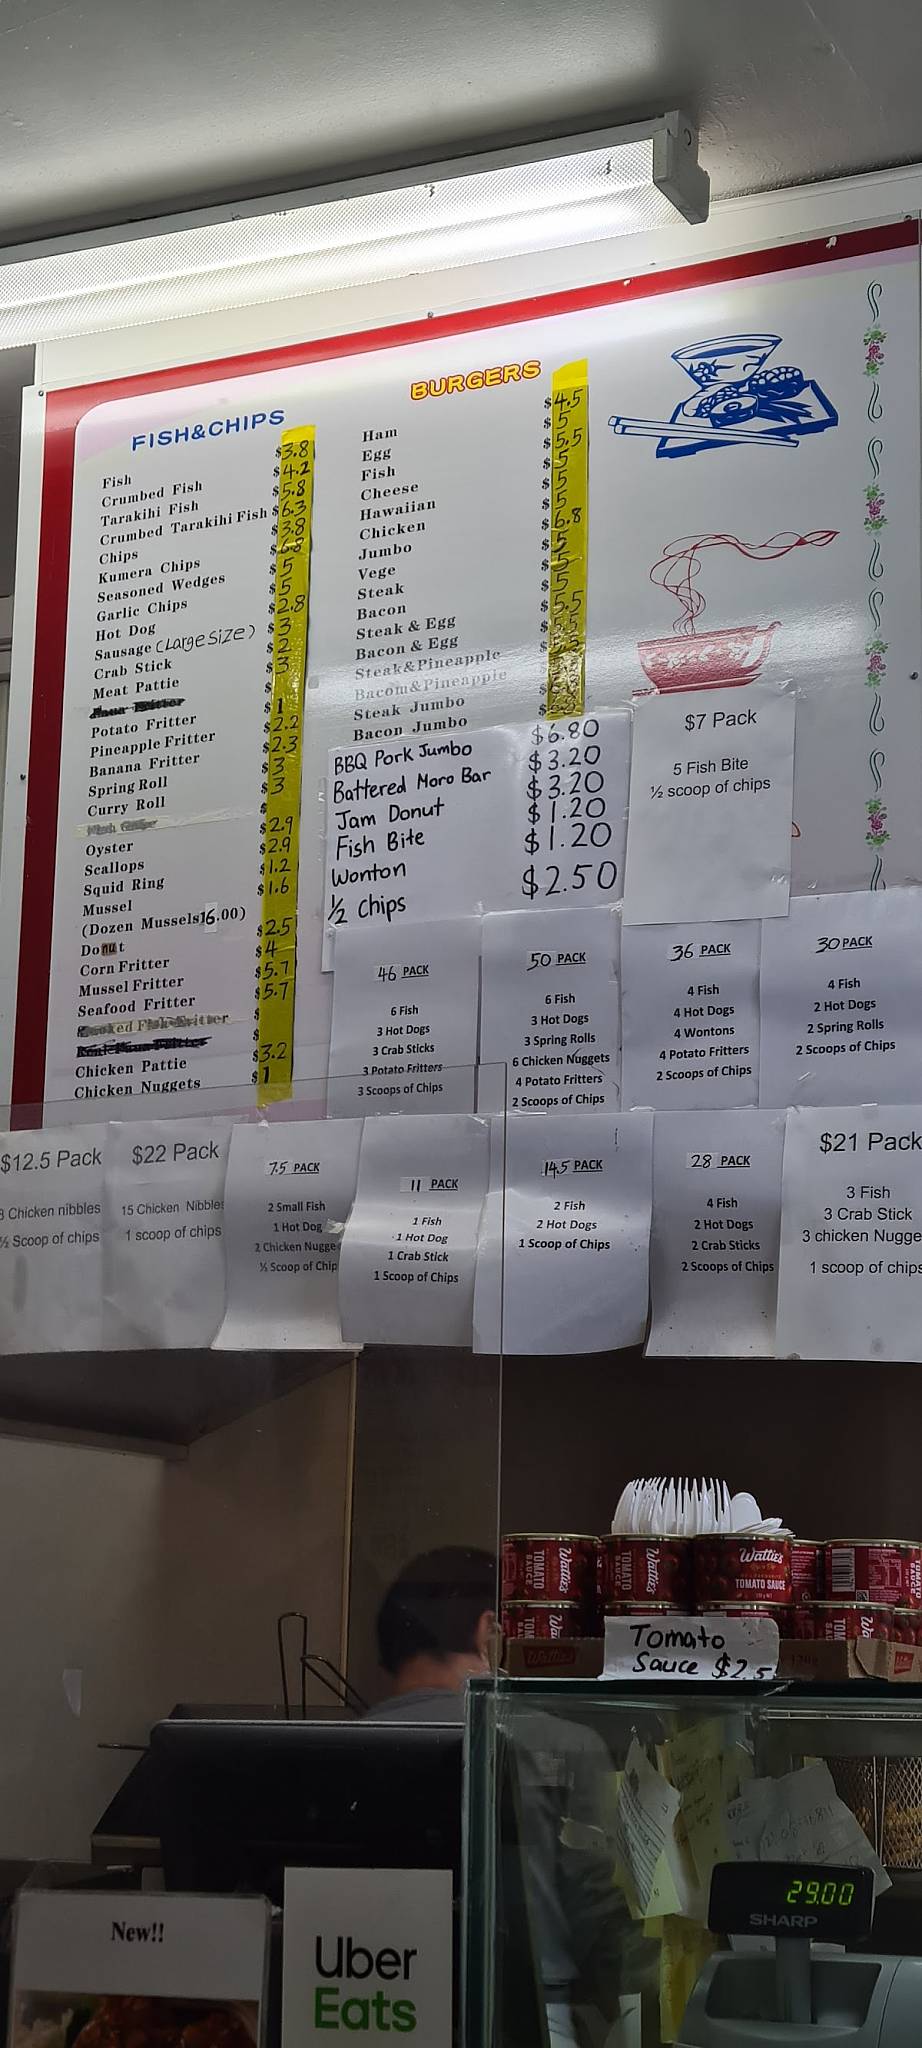 FISH&CHIPS
Fish $3.8
Crumbed Fish $4.2
Tarakihi Fish $5.8
Crumbed Tarakihi Fish $6.3
Chips $3.8
Kumera Chips $6.8
Seasoned Wedges $5
Garlic Chips $5
Hot Dog $2.8
Sausage (Large Size) $3
Crab Stick $2
Meat Pattie $3
Potato Fritter $1
Pineapple Fritter $2.2
Banana Fritter $2.3
Spring Roll $3
Curry Roll $3
Oyster $2.9
Scallops $2.9
Squid Ring $1.2
Mussel $1.6
(Dozen Mussels16.00)
Donut $2.5
Corn Fritter $4
Mussel Fritter $5.7
Seafood Fritter $5.7
Chicken Pattie $3.2
Chicken Nuggets $1
BURGERS
Ham $4.5
Egg $5
Fish $5.5
Cheese $5
Hawaiian $5
Chicken $5
Jumbo $6.8
Vege $5
Steak $5
Bacon $5
Steak & Egg $5.5
Bacon & Egg $5.5
Steak&Pineapple
Bacom&Pineapple
Steak Jumbo
Bacon Jumbo
BBQ Pork Jumbo $6.80
Battered Moro Bar $3.20
Jam Donut $3.20
Fish Bite $1.20
Wonton $1.20
½ Chips $2.50
$7 Pack
5 Fish Bite
½ scoop of chips
46 PACK
6 Fish
3 Hot Dogs
3 Crab Sticks
3 Potato Fritters
3 Scoops of Chips
50 PACK
6 Fish
3 Hot Dogs
3 Spring Rolls
6 Chicken Nuggets
4 Potato Fritters
2 Scoops of Chips
36 PACK
4 Fish
4 Hot Dogs
4 Wontons
4 Potato Fritters
2 Scoops of Chips
30 PACK
4 Fish
2 Hot Dogs
2 Spring Rolls
2 Scoops of Chips
$12.5 Pack
8 Chicken nibbles
½ Scoop of chips
$22 Pack
15 Chicken Nibbles
1 scoop of chips
7.5 PACK
2 Small Fish
1 Hot Dog
2 Chicken Nugge
½ Scoop of Chip
11 PACK
1 Fish
1 Hot Dog
1 Crab Stick
1 Scoop of Chips
14.5 PACK
2 Fish
2 Hot Dogs
1 Scoop of Chips
28 PACK
4 Fish
2 Hot Dogs
2 Crab Sticks
2 Scoops of Chips
$21 Pack
3 Fish
3 Crab Stick
3 chicken Nugge
1 scoop of chips
Wattie's
TOMATO SAUCE
Wattie's
TOMATO SAUCE
Wattie's
TOMATO SAUCE
Tomato
Sauce $2.5
29.00
SHARP
New!!
Uber
Eats